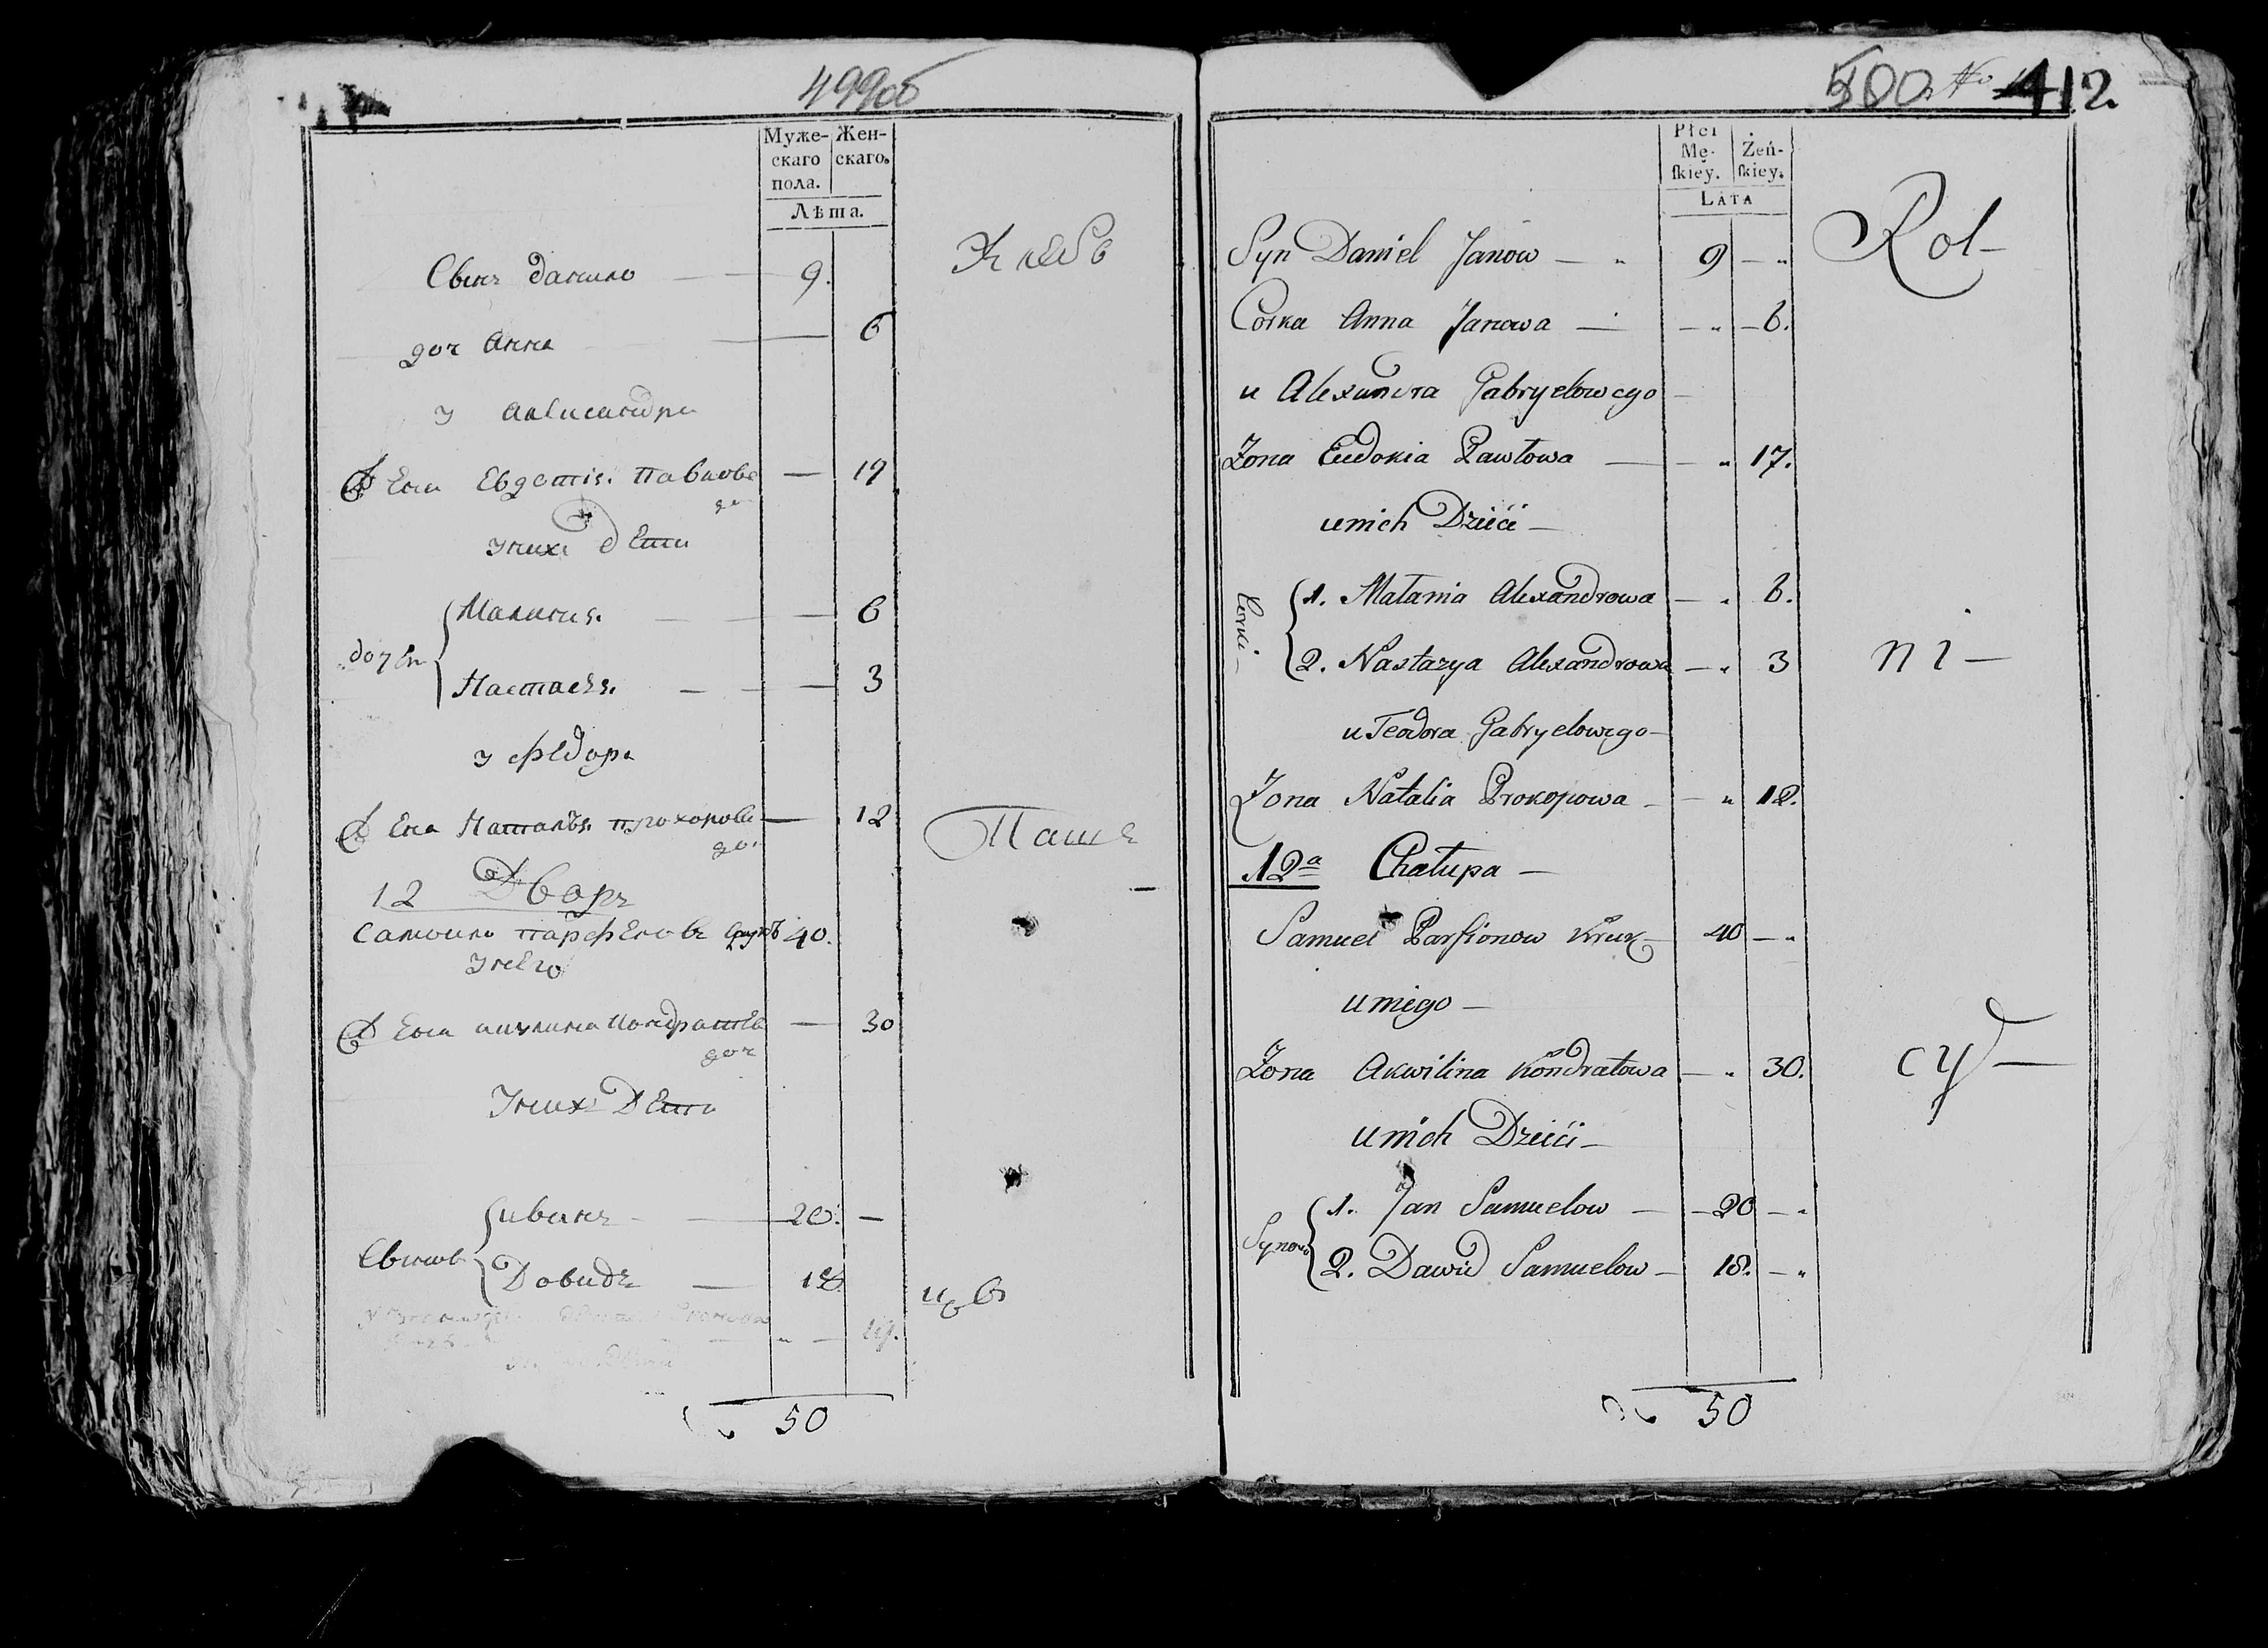 499об
Муже-
скаго
пола.
Жен-
скаго.
Лѣта.
Сынъ Данило — 9.
доч Анна — 6
у Александра
Жена Евдокія Павлова — 17
доч
у них дети
дочери
Маланія — 6
Настасья — 3
у Федора
Жена Наталья Прохорова — 12
доч
12 Дворъ
Самойло Парфеновъ 40.
у него
Жена Акулина Кондратова — 30
доч
у них дети
Сыновья
Иванъ — 20. —
Довидъ — 18
19.
50
Хлебо
Паше
цов
500 No 412.
Płci
Mę-
skiey.
Żeń-
skiey.
LATA
Syn Daniel Janow — „ 9 — „
Corka Anna Janowa — — „ — 6.
u Alexandra Gabryelowego —
Żona Eudokia Pawłowa — — „ 17.
u nich Dzieci —
Corki —
1. Małania Alexandrowa — „ 6.
2. Nastazya Alexandrowa — „ 3
u Teodora Gabryelowego —
Żona Natalia Prokopowa — — „ 12.
12a Chałupa —
Samuel Parfionow Kruk — 40 — „
u niego —
Żona Akwilina Kondratowa — „ 30.
u nich Dzieci —
Synow
1. Jan Samuelow — — 20 — „
2. Dawid Samuelow — 18. — „
50
Rol—
ni—
cy—